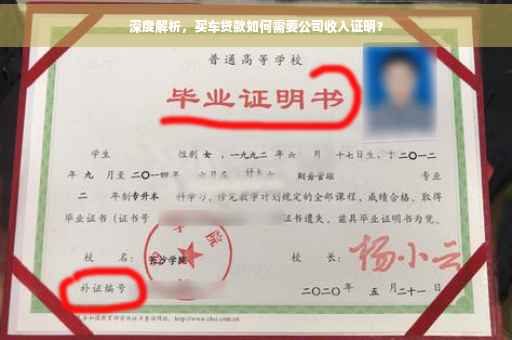 深度解析，买车贷款如何需要公司收入证明？
普通高等学校
毕业证明书
学生 性别 女，一九九二年六 月 十七日生，于二〇一二
年 九 月至二〇一四年 六月在 财务管理 专业
二 年制专升本 科学习，修完教学计划规定的全部课程，成绩合格，取得
毕业证书（证书号 证书遗失，兹具毕业证明书为凭。
校 名：长沙学院 校 长：杨小云
补证编号 二〇二〇年 五 月二十一日
http://www.chsi.com.cn